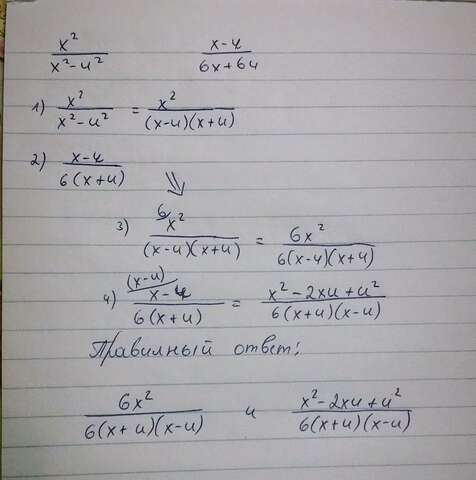 x²/(x²-u²)    (x-u)/(6x+6u)
1) x²/(x²-u²) = x²/((x-u)(x+u))
2) (x-u)/(6(x+u)) ⇒
3) 6/ x²/((x-u)(x+u)) = 6x²/(6(x-u)(x+u))
4) (x-u)/ (x-u)/(6(x+u)) = (x²-2xu+u²)/(6(x+u)(x-u))
Правилный ответ:
6x²/(6(x+u)(x-u)) и (x²-2xu+u²)/(6(x+u)(x-u))